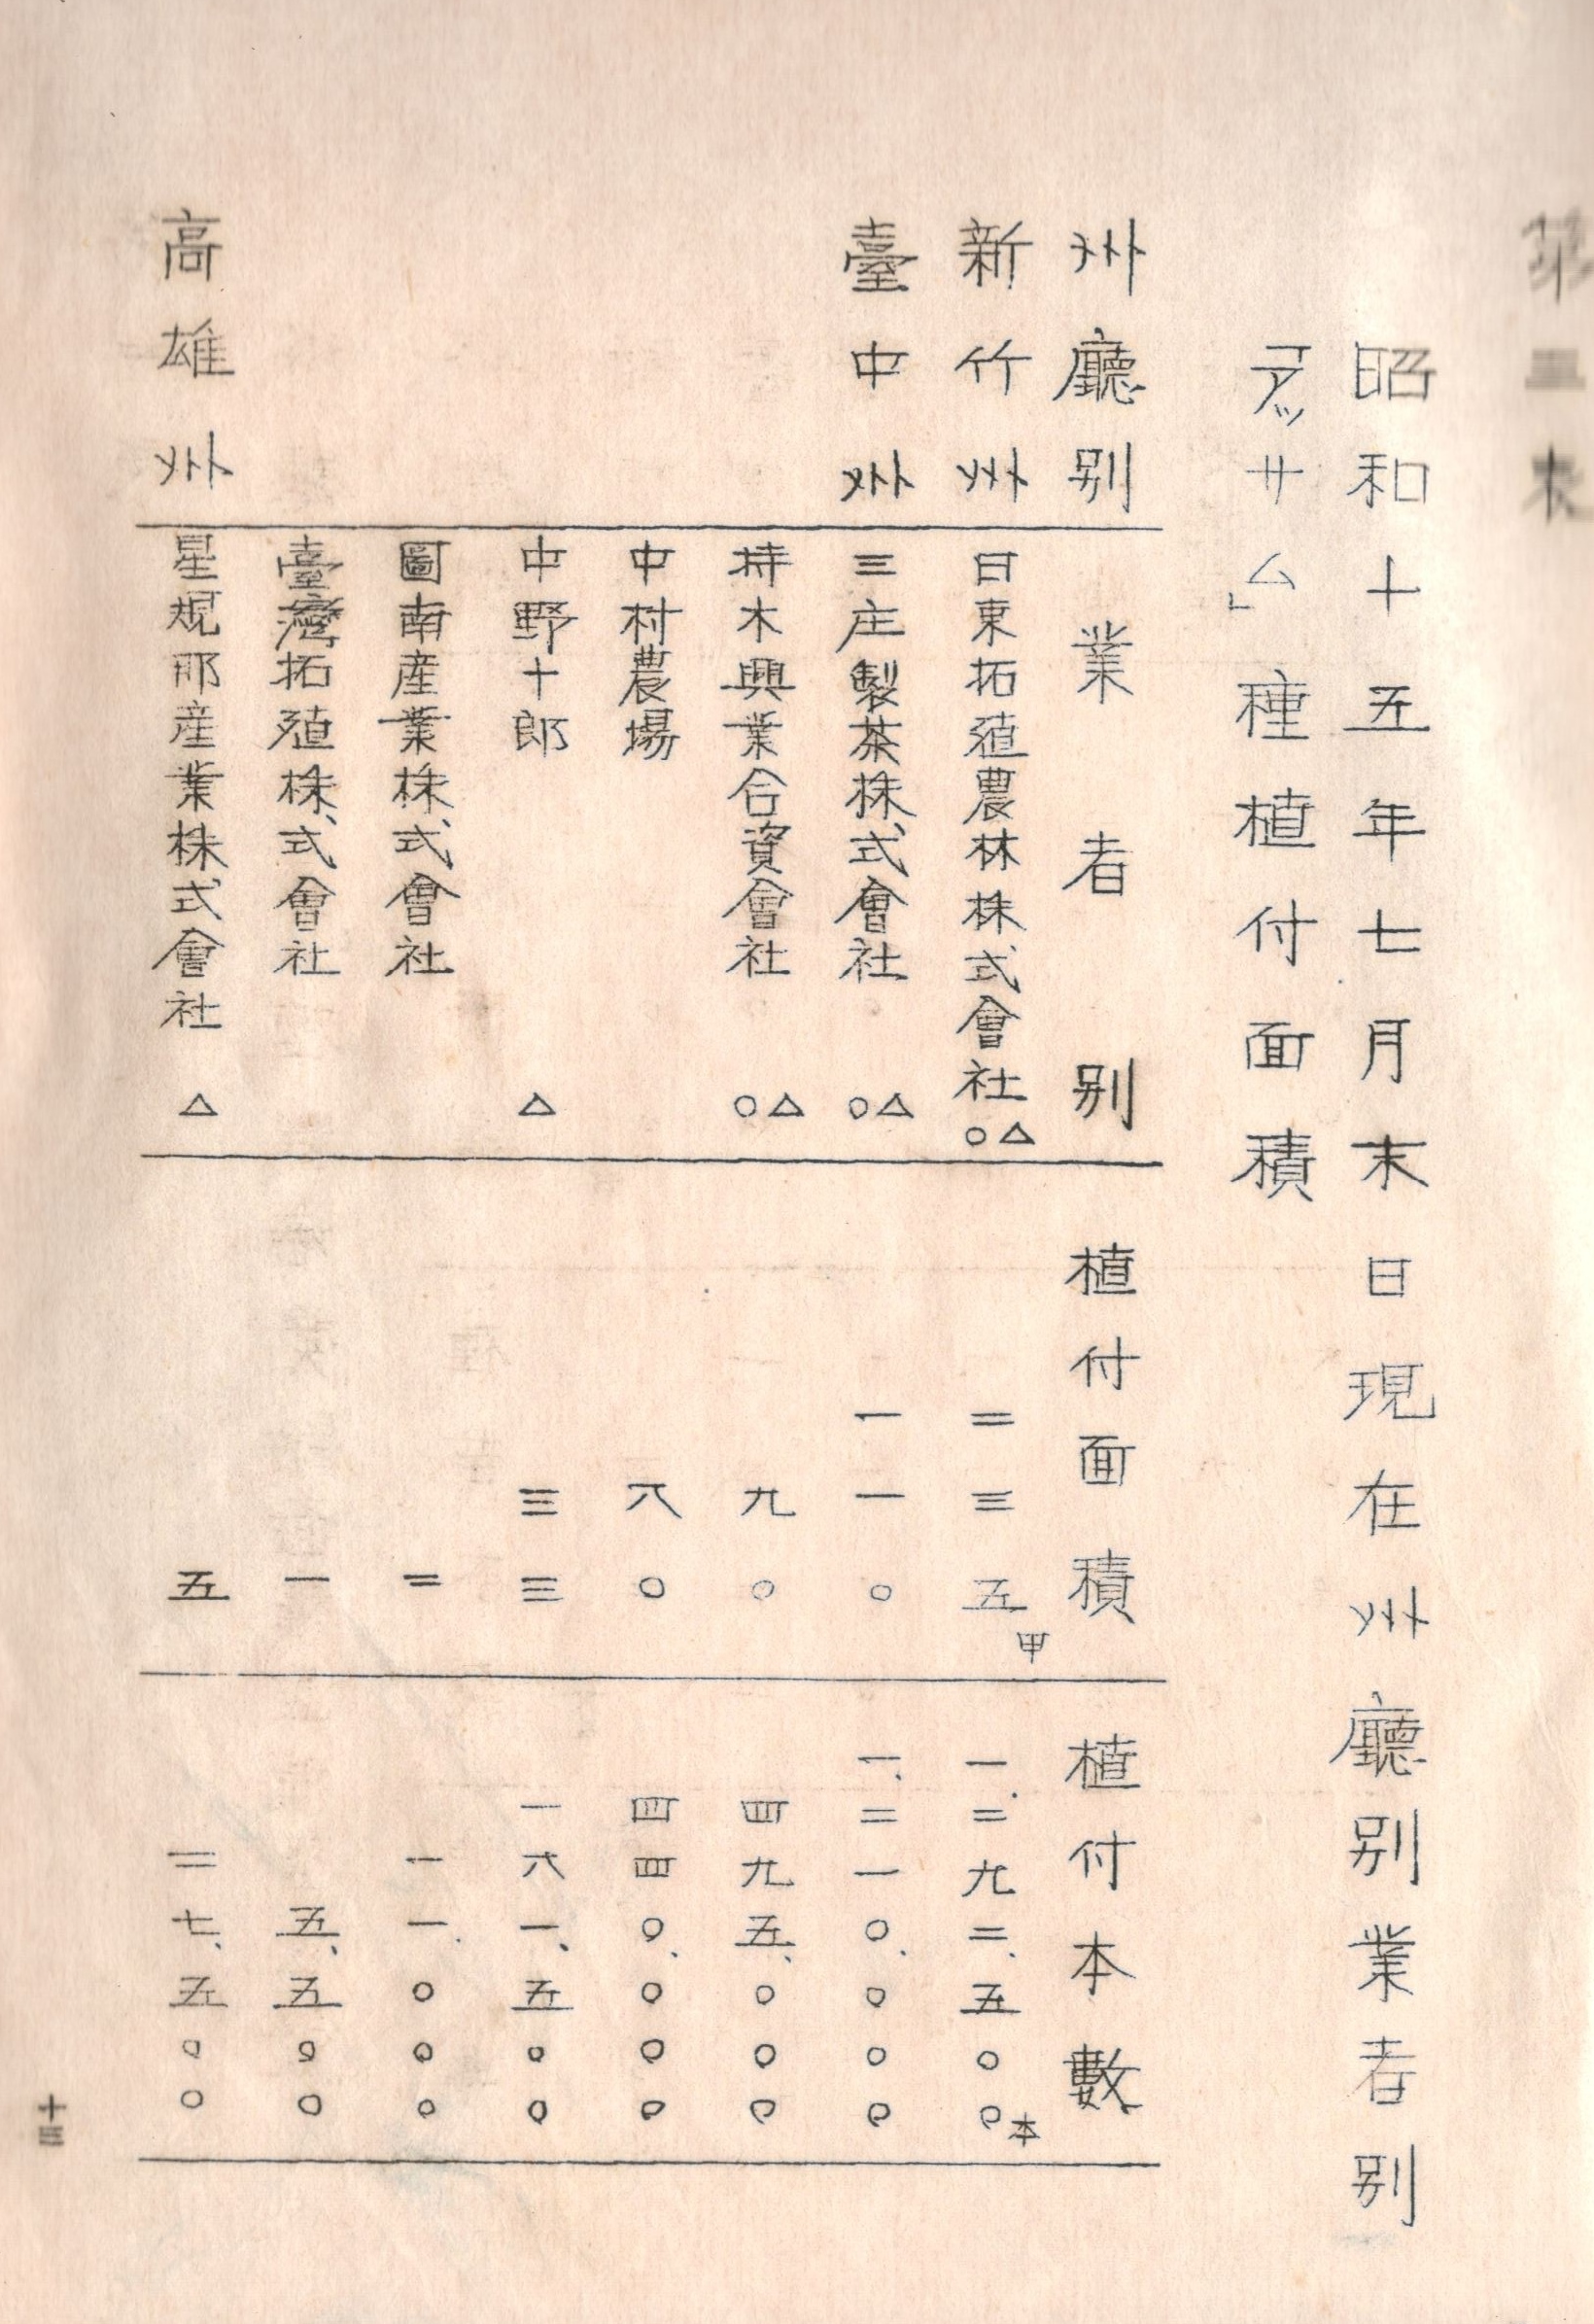 第三表
昭和十五年七月末日現在州廳別業者別
「アッサム」種植付面積
州廳別 業者別 植付面積 植付本數
新竹州 日東拓殖農林株式會社 ○△ 二三五甲 一、二九二、五〇〇本
臺中州 三庄製茶株式會社 ○△ 一一〇 一、二一〇、〇〇〇
持木興業合資會社 ○△ 九〇 四九五、〇〇〇
中村農場 八〇 四四〇、〇〇〇
中野十郎 △ 三三 一八一、五〇〇
圖南産業株式會社 二 一一、〇〇〇
臺灣拓殖株式會社 一 五、五〇〇
高雄州 星規那産業株式會社 △ 五 二七、五〇〇